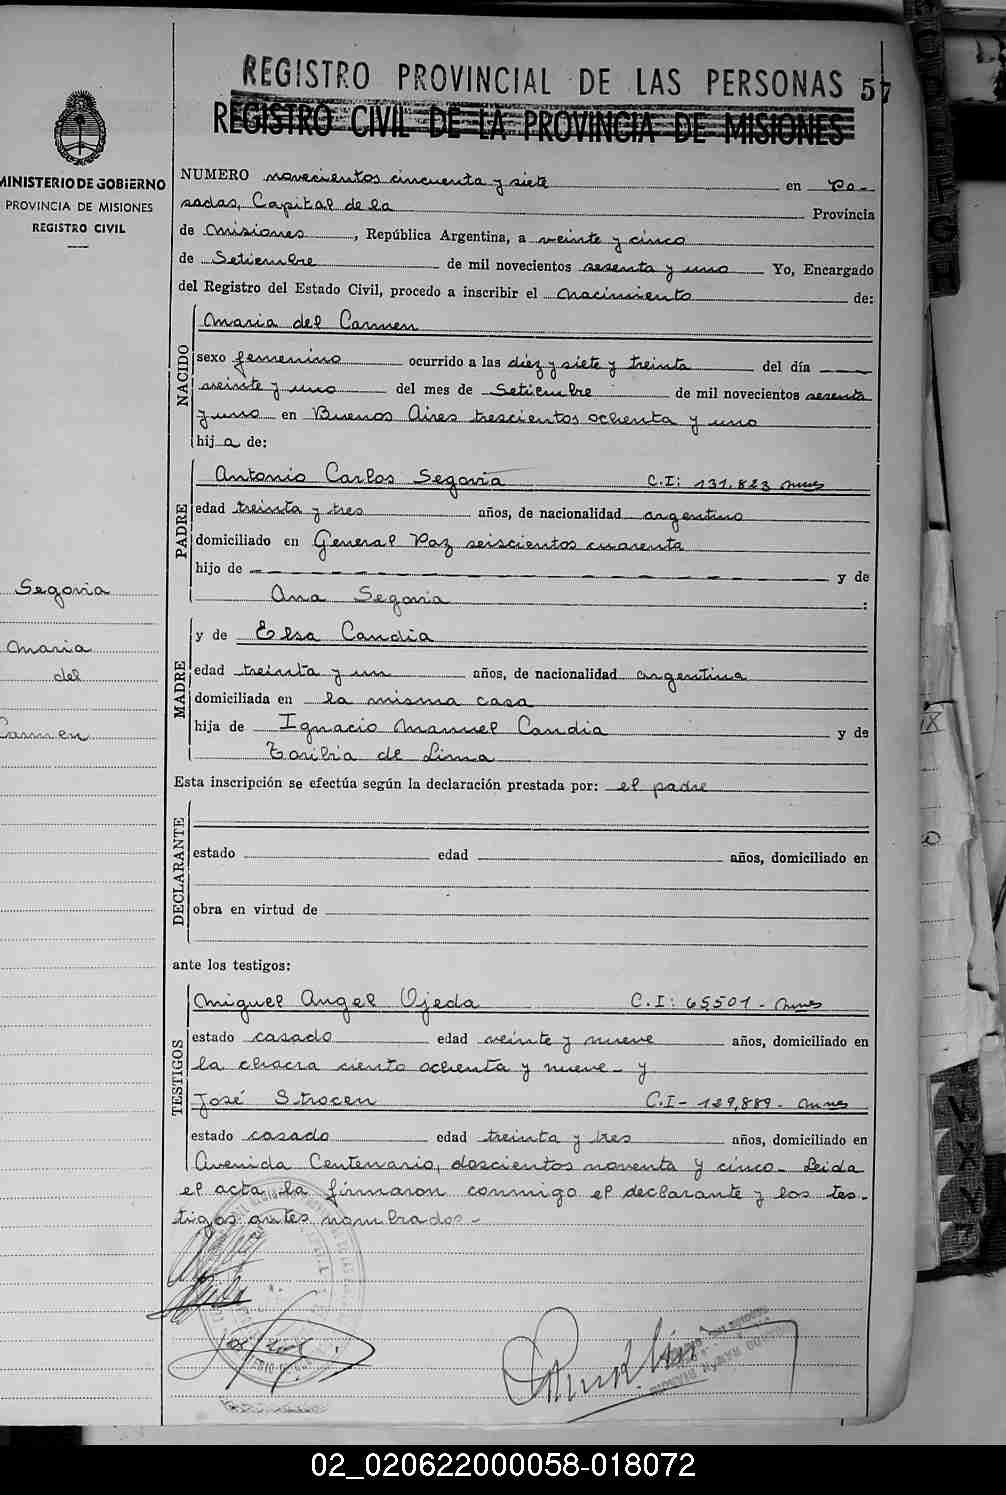 REGISTRO PROVINCIAL DE LAS PERSONAS 57
REGISTRO CIVIL DE LA PROVINCIA DE MISIONES
MINISTERIO DE GOBIERNO
PROVINCIA DE MISIONES
REGISTRO CIVIL
NUMERO novecientos cincuenta y siete en Po-
sadas, Capital de la Provincia
de Misiones, República Argentina, a veinte y cinco
de Setiembre de mil novecientos sesenta y uno Yo, Encargado
del Registro del Estado Civil, procedo a inscribir el nacimiento de:
NACIDO
Maria del Carmen
sexo femenino ocurrido a las diez y siete y treinta del día
veinte y uno del mes de Setiembre de mil novecientos sesenta
y uno en Buenos Aires trescientos ochenta y uno
hija de:
PADRE
Antonio Carlos Segovia C.I: 131.823 Mnes
edad treinta y tres años, de nacionalidad argentino
domiciliado en General Paz seiscientos cuarenta
hijo de y de
Ana Segovia :
Segovia
Maria
del
Carmen
MADRE
y de Elsa Candia
edad treinta y un años, de nacionalidad argentina
domiciliada en la misma casa
hija de Ignacio Manuel Candia y de
Toribia de Lima
Esta inscripción se efectúa según la declaración prestada por: el padre
DECLARANTE
estado edad años, domiciliado en
obra en virtud de
ante los testigos:
TESTIGOS
Miguel Angel Ojeda C.I: 65501 - Mnes
estado casado edad veinte y nueve años, domiciliado en
la chacra ciento ochenta y nueve - y
José Strocen C.I - 129,889 - Mnes
estado casado edad treinta y tres años, domiciliado en
Avenida Centenario, doscientos noventa y cinco - Leida
el acta la firmaron conmigo el declarante y los tes-
tigos antes nombrados -
02_020622000058-018072